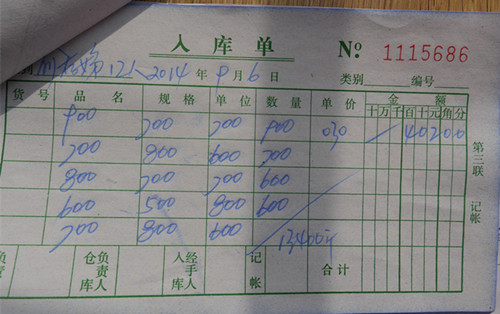 入库单 №: 1115686
到 12人 2014年9月6日 类别 编号
货号 品名 规格 单位 数量 单价 金额
十万千百十元角分
900 200 200 900 030 1 4 0 2 0 0
200 800 600 200
800 200 200 600
600 500 800 600
200 800 600 13400元
负责人 仓库负责人 入库经手人 记帐 合计
第三联 记帐